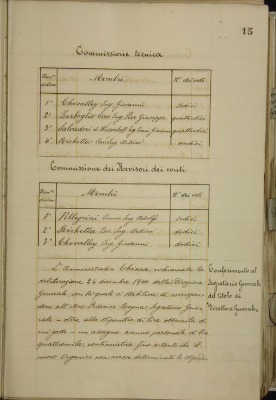 15
Commissione tecnica
Num.º d'ordine Membri N.º dei voti
1º Chevalley Ing. Giovanni sedici
2º Ing. Pier Giuseppe quattordici
3º Salvadori di Wiesenhoff Ing. Giacomo quattordici
4º Ing. Antonio dodici
Commissione dei Revisori dei conti
Num.º d'ordine Membri N.º dei voti
1º Pellegrini Comm. Ing. Adolfo sedici
2º Ing. Antonio dodici
3º Chevalley Ing. Giovanni dodici
L'Amministratore Chiesa, richiamata la
deliberazione 24 dicembre 1900 della Direzione
Generale, con la quale si stabiliva di
all' Avv. Federico Segretario Gene-
rale - oltre allo stipendio di lire
- un assegno annuo personale di lire
quattromila,
nuovo Organico non venisse determinato lo stipendio
Conferimento al
Segretario Generale
del titolo di
Direttore Generale